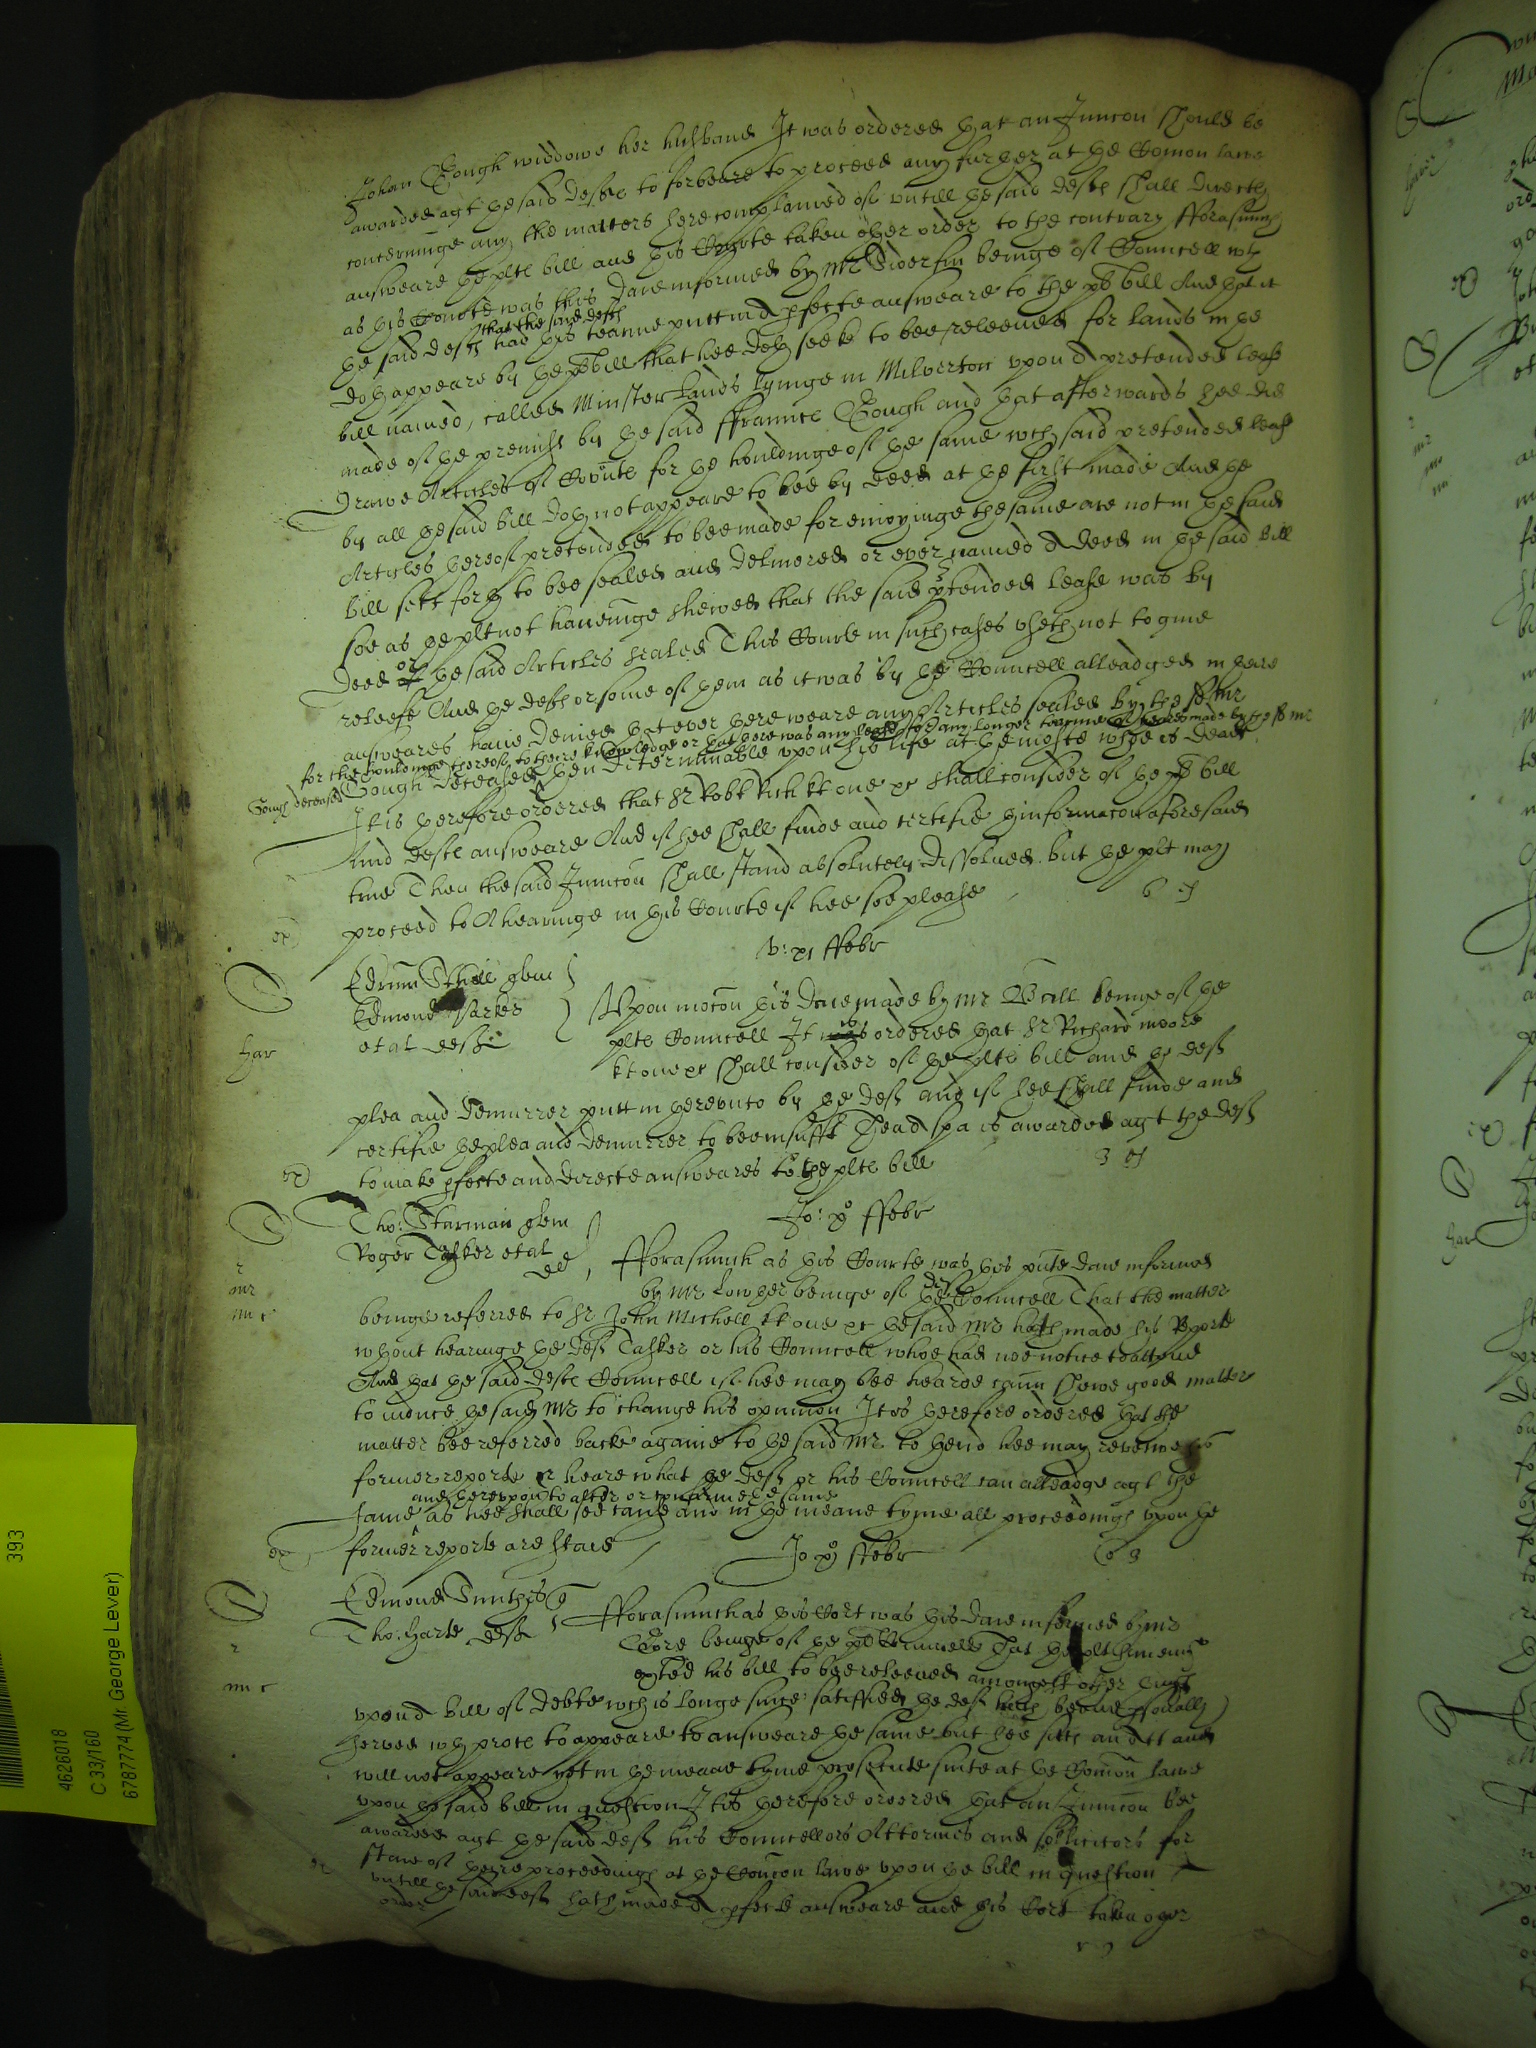 Johan Gough widdowe her husband It was ordered that an Iniuncon should be
awarded agt the said defte to forbeare to proceed any further at the Comon lawe
concerninge any the matters here complained of untill the said defte shall directly
answeare the plts bill and this Courte taken other order to the contrary fforasmuch
as this Courte was this daie informed by Mr beinge of Councell wth
the said defts that the said defts had this tearme putt in a pfecte answeare to the pts bill And that it
doth appeare by the pts bill that hee doth seeke to bee releeued for lands in the
bill named, called Minster Lands lyinge in Milverton upon a pretended lease
made of the premiss by the said ffraunce Gough and that afterwards hee did
drawe Articles of Covnte for the houldinge of the same wch said pretended lease
by all the said bill doth not appeare to bee by deed at the first made And the
Articles thereof pretended to bee made for enioyinge the same are not in the said
bill sett forth to bee sealed and deliuered or ever named a deed in the said bill
soe as the plt not haueinge shewed that the said ptended lease was by
deed or the said Articles sealed This Courte in such cases useth not to giue
releefe And the defts or some of them as it was by the Councell alleadged in theire
answeares haue denied that ever there weare any Articles sealed by the sd Mr
for the houldinge thereof to theire knowledge or that there was any lease for any longer tearme of yeares made by the sd mr
Gough deceased
Gough deceased then determinable upon his life at the moste whoe is dead
It is therefore ordered that Sr Robt Rich kt one &c shall consider of the pts bill
And defts answeare And if hee shall finde and certifie thinformacon aforesaid
true Then the said Iniuncon shall stand absolutely dissolued but the plt may
proceed to A hearinge in this Courte if hee soe please
ffebr
Edmond Parker
et al defts
har
Upon mocon this daie made by Mr beinge of the
plts Councell It is ordered that Sr Richard Moore
kt one &c shall consider of the plts bill and the defts
plea and demurrer putt in thereunto by the defts and if hee shall finde and
certifie the plea and demurrer to bee insufft Then a spa is awarded agt the defts
to make pfecte and directe answeares to the plts bill
Jo: ffebr
Tho: Sturman
Roger Tasker et al
fforasmuch as this Courte was this pnte daie informed
by Mr Lowther beinge of the defts Councell That the matter
beinge referred to Sr John Michell kt one &c the said Mr hath made his Reporte
wthout hearinge the deft Tasker or his Councell whoe had noe notice to attend
And that the said defts Councell if hee may bee hearde cann shewe good matter
to induce the said Mr to change his opinion It is therefore ordered that the
matter bee referred backe againe to the said Mr to thend hee may reveiwe his
former reporte or heare what the deft or his Councell can alleadge agt the
and thereupon to alter or confirme the same
same as hee shall see cause and in the meane tyme all proceedings upon the
former reporte are staied
Jo ffebr
Edmond
Tho: Harte deft
fforasmuch as this Cort was this daie informed by Mr
Gore beinge of the plts Councell That the plt haueinge
his bill to bee releeued amongest other things
upon a bill of debte wch is longe since satisfied the deft hath beene psonally
serued wth proces to appeare to answeare the same but hee sitts an Att and
will not appeare yet in the meane tyme prosecute suite at the Comon lawe
upon the said bill in question It is therefore ordered that an Iniuncon bee
awarded agt the said deft his Councellors Attornies and sollicitors for
staie of theire proceedings at the Comon lawe upon the bill in question
untill the said deft hath made a pfecte answeare and this Cort taken other
order
393
4626018
C 33/160
6787774 (Mr. George Lever)